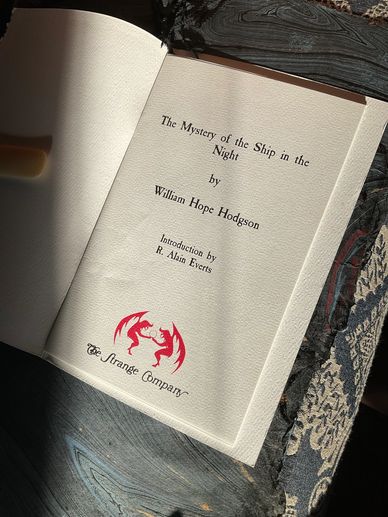 The Mystery of the Ship in the
Night
by
William Hope Hodgson
Introduction by
R. Alain Everts
The Strange Company